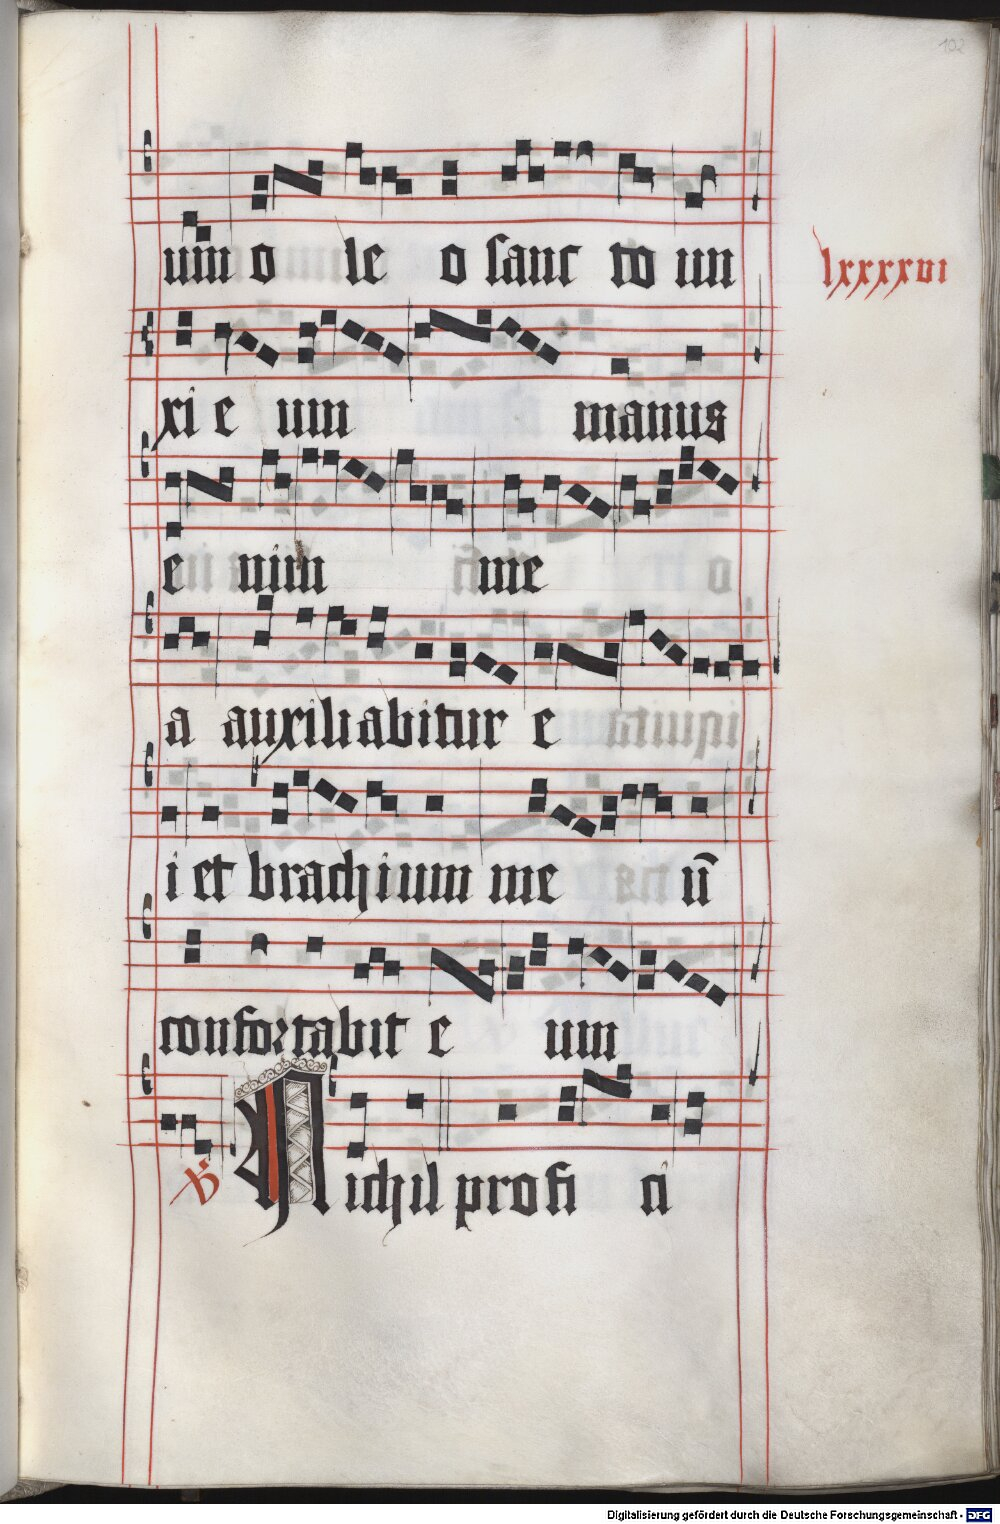 102
um o le o sanc to un
lxxxxvi
xi e um manus
e nim me
a auxiliabitur e
i et brachium me ū
confortabit e um
℣ Nichil profi ci
Digitalisierung gefördert durch die Deutsche Forschungsgemeinschaft - DFG